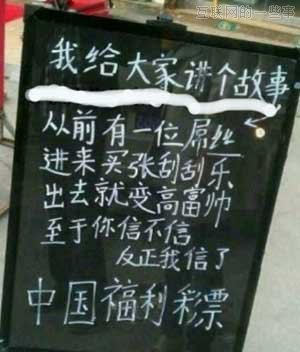 互联网的一些事
我给大家讲个故事
从前有一位屌丝
进来买张刮刮乐
出去就变高富帅
至于你信不信
反正我信了
中国福利彩票